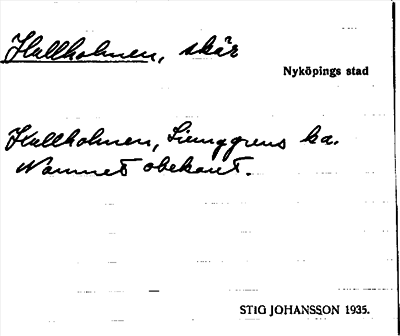 Hallholmen, skär
Nyköpings stad
Kullholmen, Ljunggrens ka.
Namnet obekant.
STIG JOHANSSON 1935.